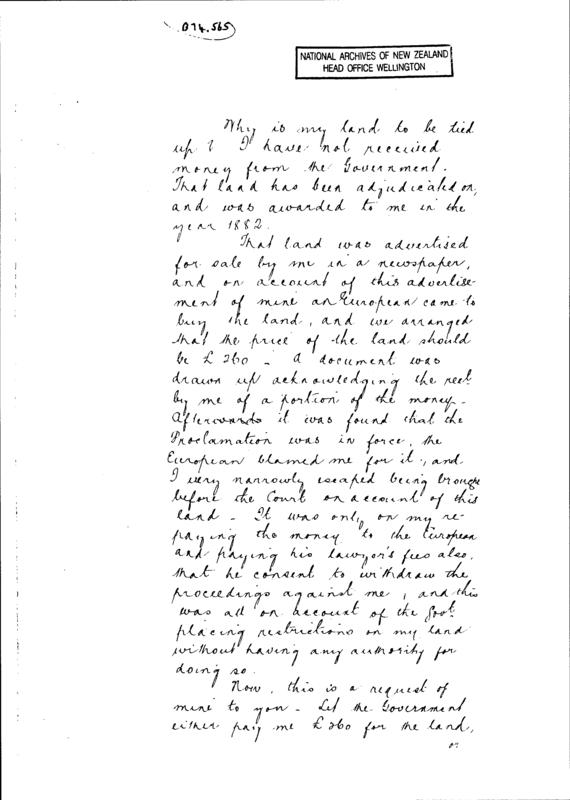 B74.565
NATIONAL ARCHIVES OF NEW ZEALAND
HEAD OFFICE WELLINGTON
Why is my land to be tied
up? I have not received
money from the Government.
That land has been adjudicated on,
and was awarded to me in the
year 1882.
That land was advertised
for sale by me in a newspaper,
and on account of this advertise-
ment of mine an European came to
buy the land, and we arranged
that the price of the land should
be £260 - A document was
drawn up acknowledging the rect
by me of a portion of the money -
Afterwards it was found that the
Proclamation was in force, the
European blamed me for it, and
I very narrowly escaped being brought
before the Court on account of this
land - It was only on my re-
paying the money to the European
and paying his lawyer's fees also,
that he consent to withdraw the
proceedings against me, and this
was all on account of the Govt
placing restrictions on my land
without having any authority for
doing so.
Now, this is a request of
mine to you - Let the Government
either pay me £260 for the land,
or